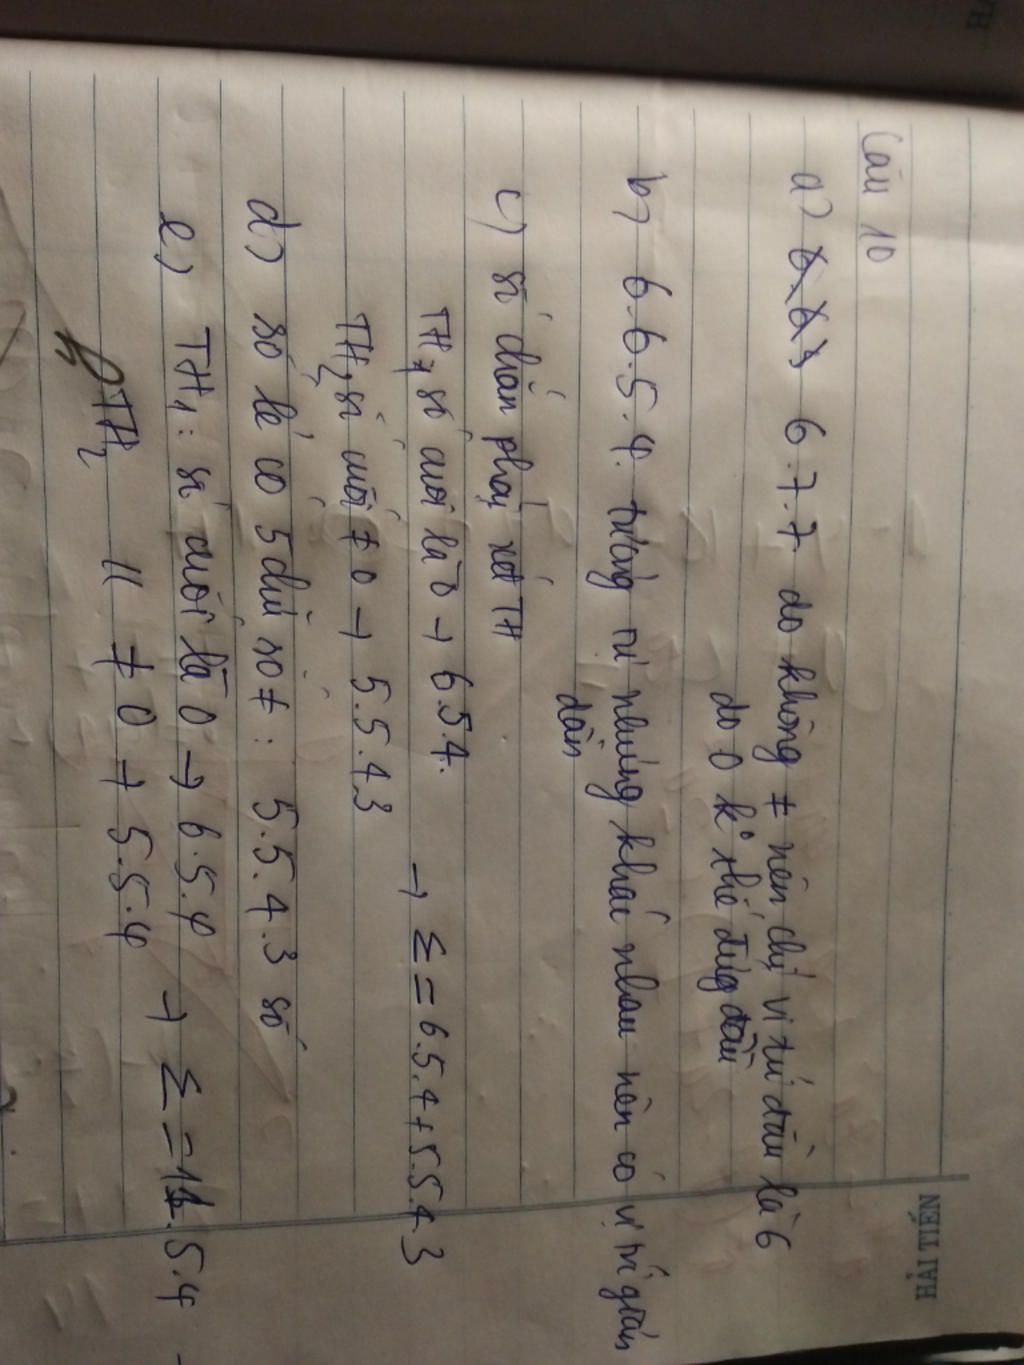 HẢI TIẾN
Câu 10
a) 6.7.7 do không ≠ nên chỉ vị trí đầu là 6
do 0 k° thể đứng đầu
b) 6.6.5.4. tương tự nhưng khác nhau nên có vị trí giảm
dần
c) số chẵn phải xét TH
TH1 số cuối là 0 → 6.5.4.
→ Σ = 6.5.4 + 5.5.4.3
TH2 số cuối ≠ 0 → 5.5.4.3
d) số lẻ có 5 chữ số ≠ : 5.5.4.3 số
e) TH1: số cuối là 0 → 6.5.4
→ Σ = 11.5.4
TH2 〃 ≠ 0 → 5.5.4